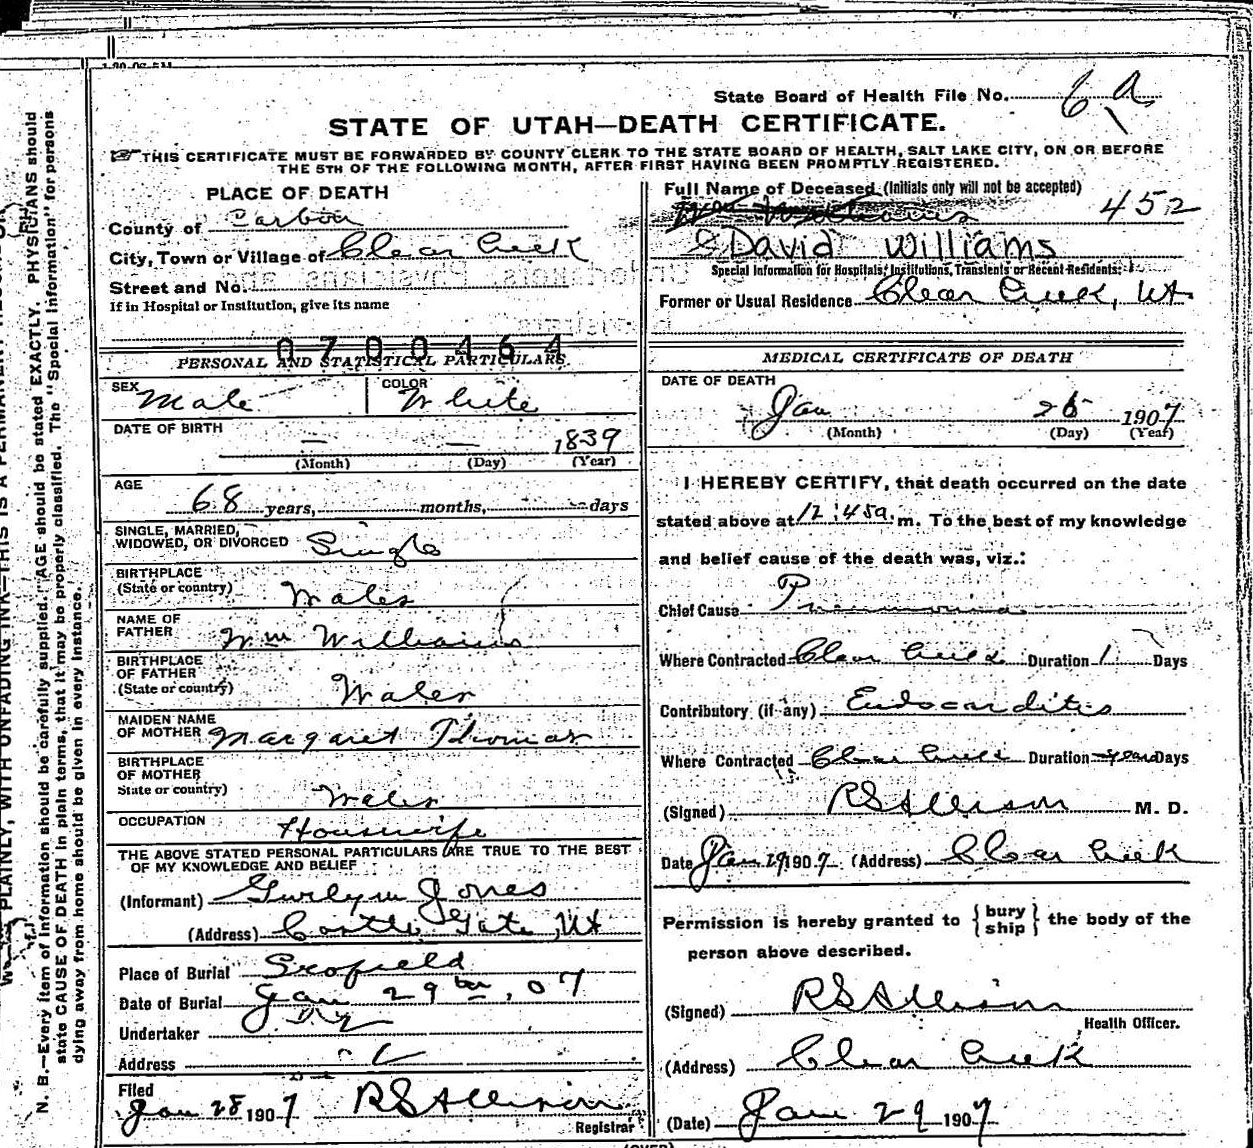 State Board of Health File No. 6 a
STATE OF UTAH—DEATH CERTIFICATE.
THIS CERTIFICATE MUST BE FORWARDED BY COUNTY CLERK TO THE STATE BOARD OF HEALTH, SALT LAKE CITY, ON OR BEFORE
THE 5TH OF THE FOLLOWING MONTH, AFTER FIRST HAVING BEEN PROMPTLY REGISTERED.
PLACE OF DEATH
County of Carbon
City, Town or Village of Clear Creek
Street and No.
If in Hospital or Institution, give its name
0700464
PERSONAL AND STATISTICAL PARTICULARS.
SEX Male COLOR White
DATE OF BIRTH — — 1839
(Month) (Day) (Year)
AGE 68 years, months, days
SINGLE, MARRIED,
WIDOWED, OR DIVORCED Single
BIRTHPLACE
(State or country) Wales
NAME OF
FATHER Wm Williams
BIRTHPLACE
OF FATHER
(State or country) Wales
MAIDEN NAME
OF MOTHER Margaret Thomas
BIRTHPLACE
OF MOTHER
State or country) Wales
OCCUPATION Housewife
THE ABOVE STATED PERSONAL PARTICULARS ARE TRUE TO THE BEST
OF MY KNOWLEDGE AND BELIEF
(Informant) Gwilym Jones
(Address) Castle Gate, Ut
Place of Burial Scofield
Date of Burial Jan 29, 07
Undertaker
Address
Filed
Jan 28 1907 RS Allison
Registrar
(OVER)
Full Name of Deceased (Initials only will not be accepted)
452
David Williams
Special Information for Hospitals, Institutions, Transients or Recent Residents:
Former or Usual Residence Clear Creek, Ut
MEDICAL CERTIFICATE OF DEATH
DATE OF DEATH
Jan 26 1907
(Month) (Day) (Year)
I HEREBY CERTIFY, that death occurred on the date
stated above at 12:45a. m. To the best of my knowledge
and belief cause of the death was, viz.:
Chief Cause Pneumonia
Where Contracted Clear Creek Duration 1 Days
Contributory (if any) Endocarditis
Where Contracted Clear Creek Duration years Days
(Signed) RS Allison M. D.
Date Jan 29 1907 (Address) Clear Creek
Permission is hereby granted to {bury
ship} the body of the
person above described.
(Signed) RS Allison
Health Officer.
(Address) Clear Creek
(Date) Jan 29 1907
N. B.—Every item of information should be carefully supplied. AGE should be stated EXACTLY. PHYSICIANS should
state CAUSE OF DEATH in plain terms, that it may be properly classified. The "Special Information" for persons
dying away from home should be given in every instance.
PLAINLY, WITH UNFADING INK—THIS IS A PERMANENT